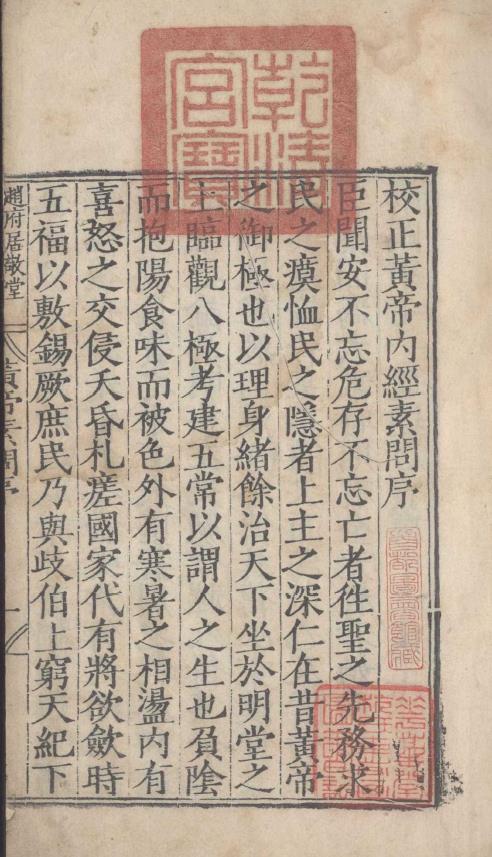 校正黃帝內經素問序
臣聞安不忘危存不忘亡者徃聖之先務求
民之瘼恤民之隱者上主之深仁在昔黃帝
之御極也以理身緒餘治天下坐於明堂之
上臨觀八極考建五常以謂人之生也負陰
而抱陽食味而被色外有寒暑之相盪內有
喜怒之交侵夭昏札瘥國家代有將欲斂時
五福以敷錫厥庶民乃與歧伯上窮天紀下
趙府居敬堂
黃帝素問序
一
乾清
宮寶